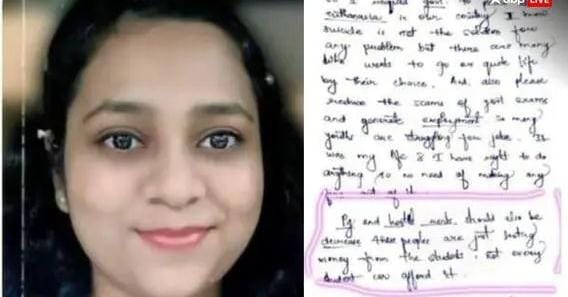 abp LIVE
euthanasia in our country I know
suicide is not the solution for
any problem but there are many
who wants to go or quite life
by their choice. And also please
reduce the scams of govt exams
and generate employment so many
youths are struggling for jobs. It
was my life & I have right to do
anything so no need of making any
out of it.
Pg and hostel rents should also be
decrease these people are just looting
money from the students not every
student can afford it.